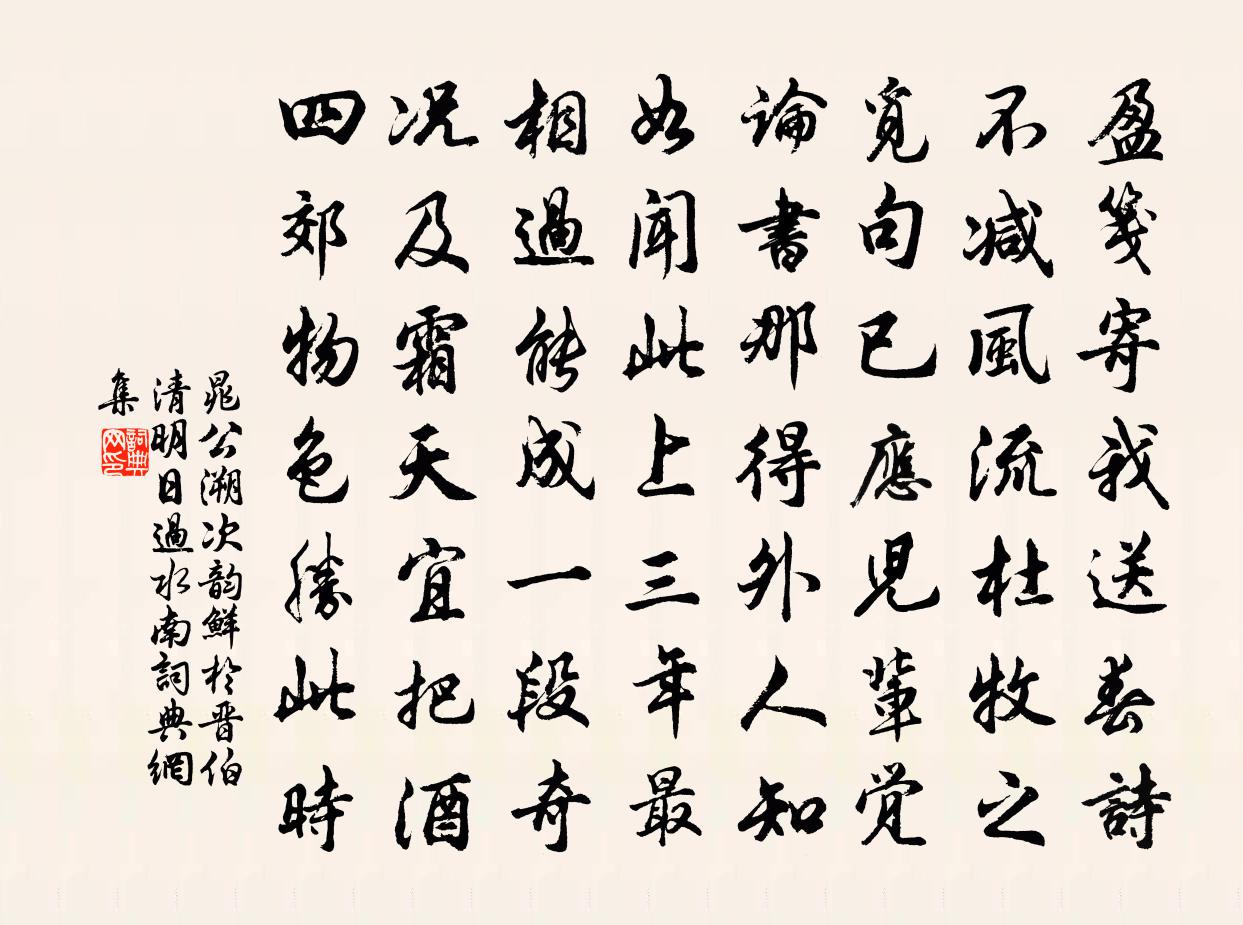 盈箋寄我送春詩
不減風流杜牧之
覓句已應児輩覚
論書那得外人知
如聞此上三年最
相過能成一段奇
況及霜天宜把酒
四郊物色勝此時
晁公溯次韵鮮於晋伯
清明日過水南詞典網
集
詞典网印